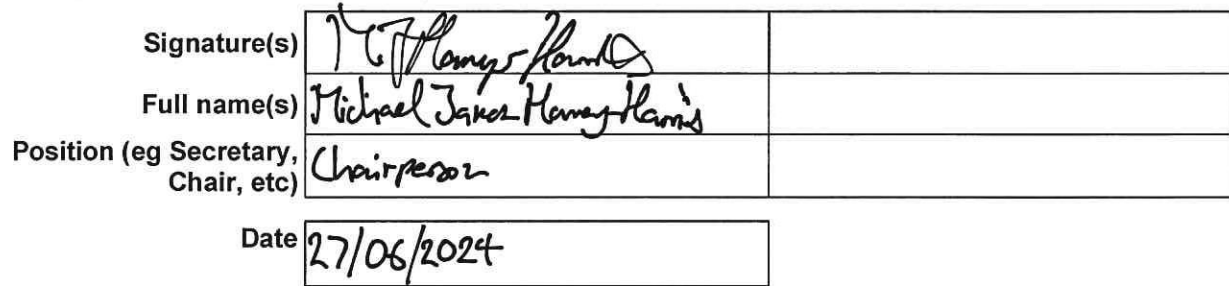 Signature(s) M J Harvey-Harris
Full name(s) Michael James Harvey-Harris
Position (eg Secretary,
Chair, etc) Chairperson
Date 27/06/2024